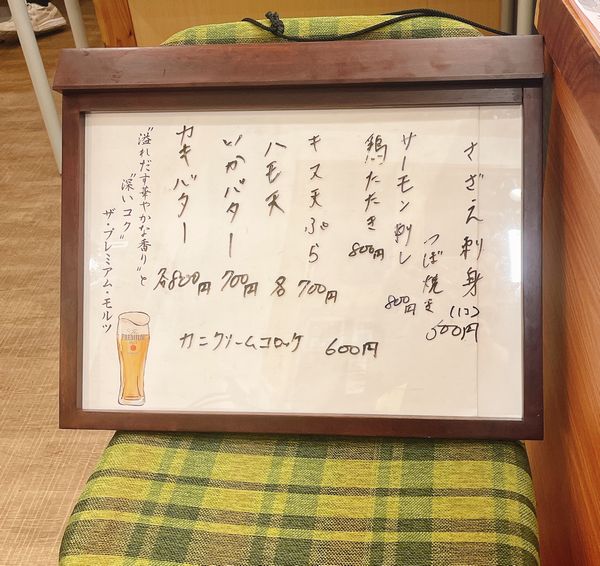 さざえ刺身
つぼ焼き
(1コ)
500円
サーモン刺し
800円
鶏たたき
800円
キス天ぷら
700円
ハモ天
各
いかバター
700円
カキバター
各800円
カニクリームコロッケ 600円
"溢れだす華やかな香り"と
"深いコク"
ザ・プレミアム・モルツ
PREMIUM